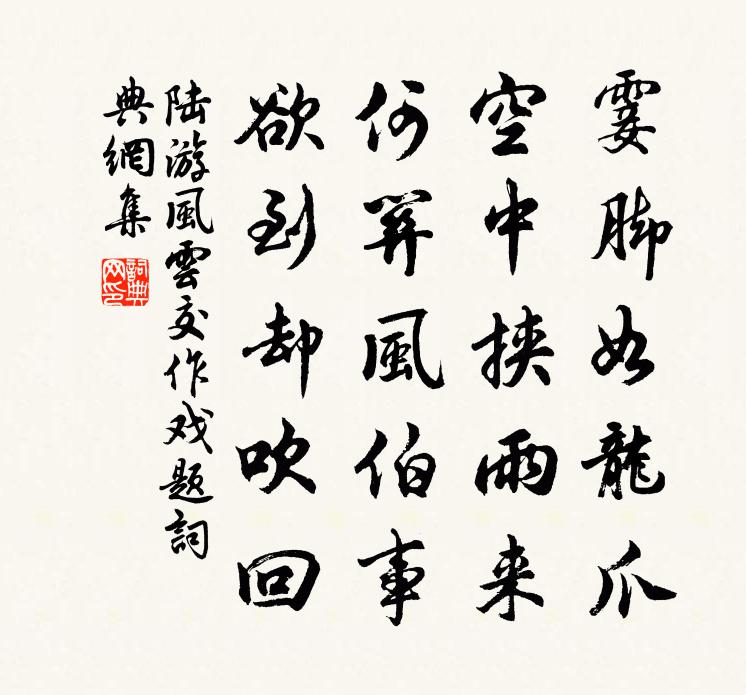 霎脚如龍爪
空中挾雨来
何關風伯事
欲到却吹回
陸游風雲交作戏題詞
典網集
詞典
网印